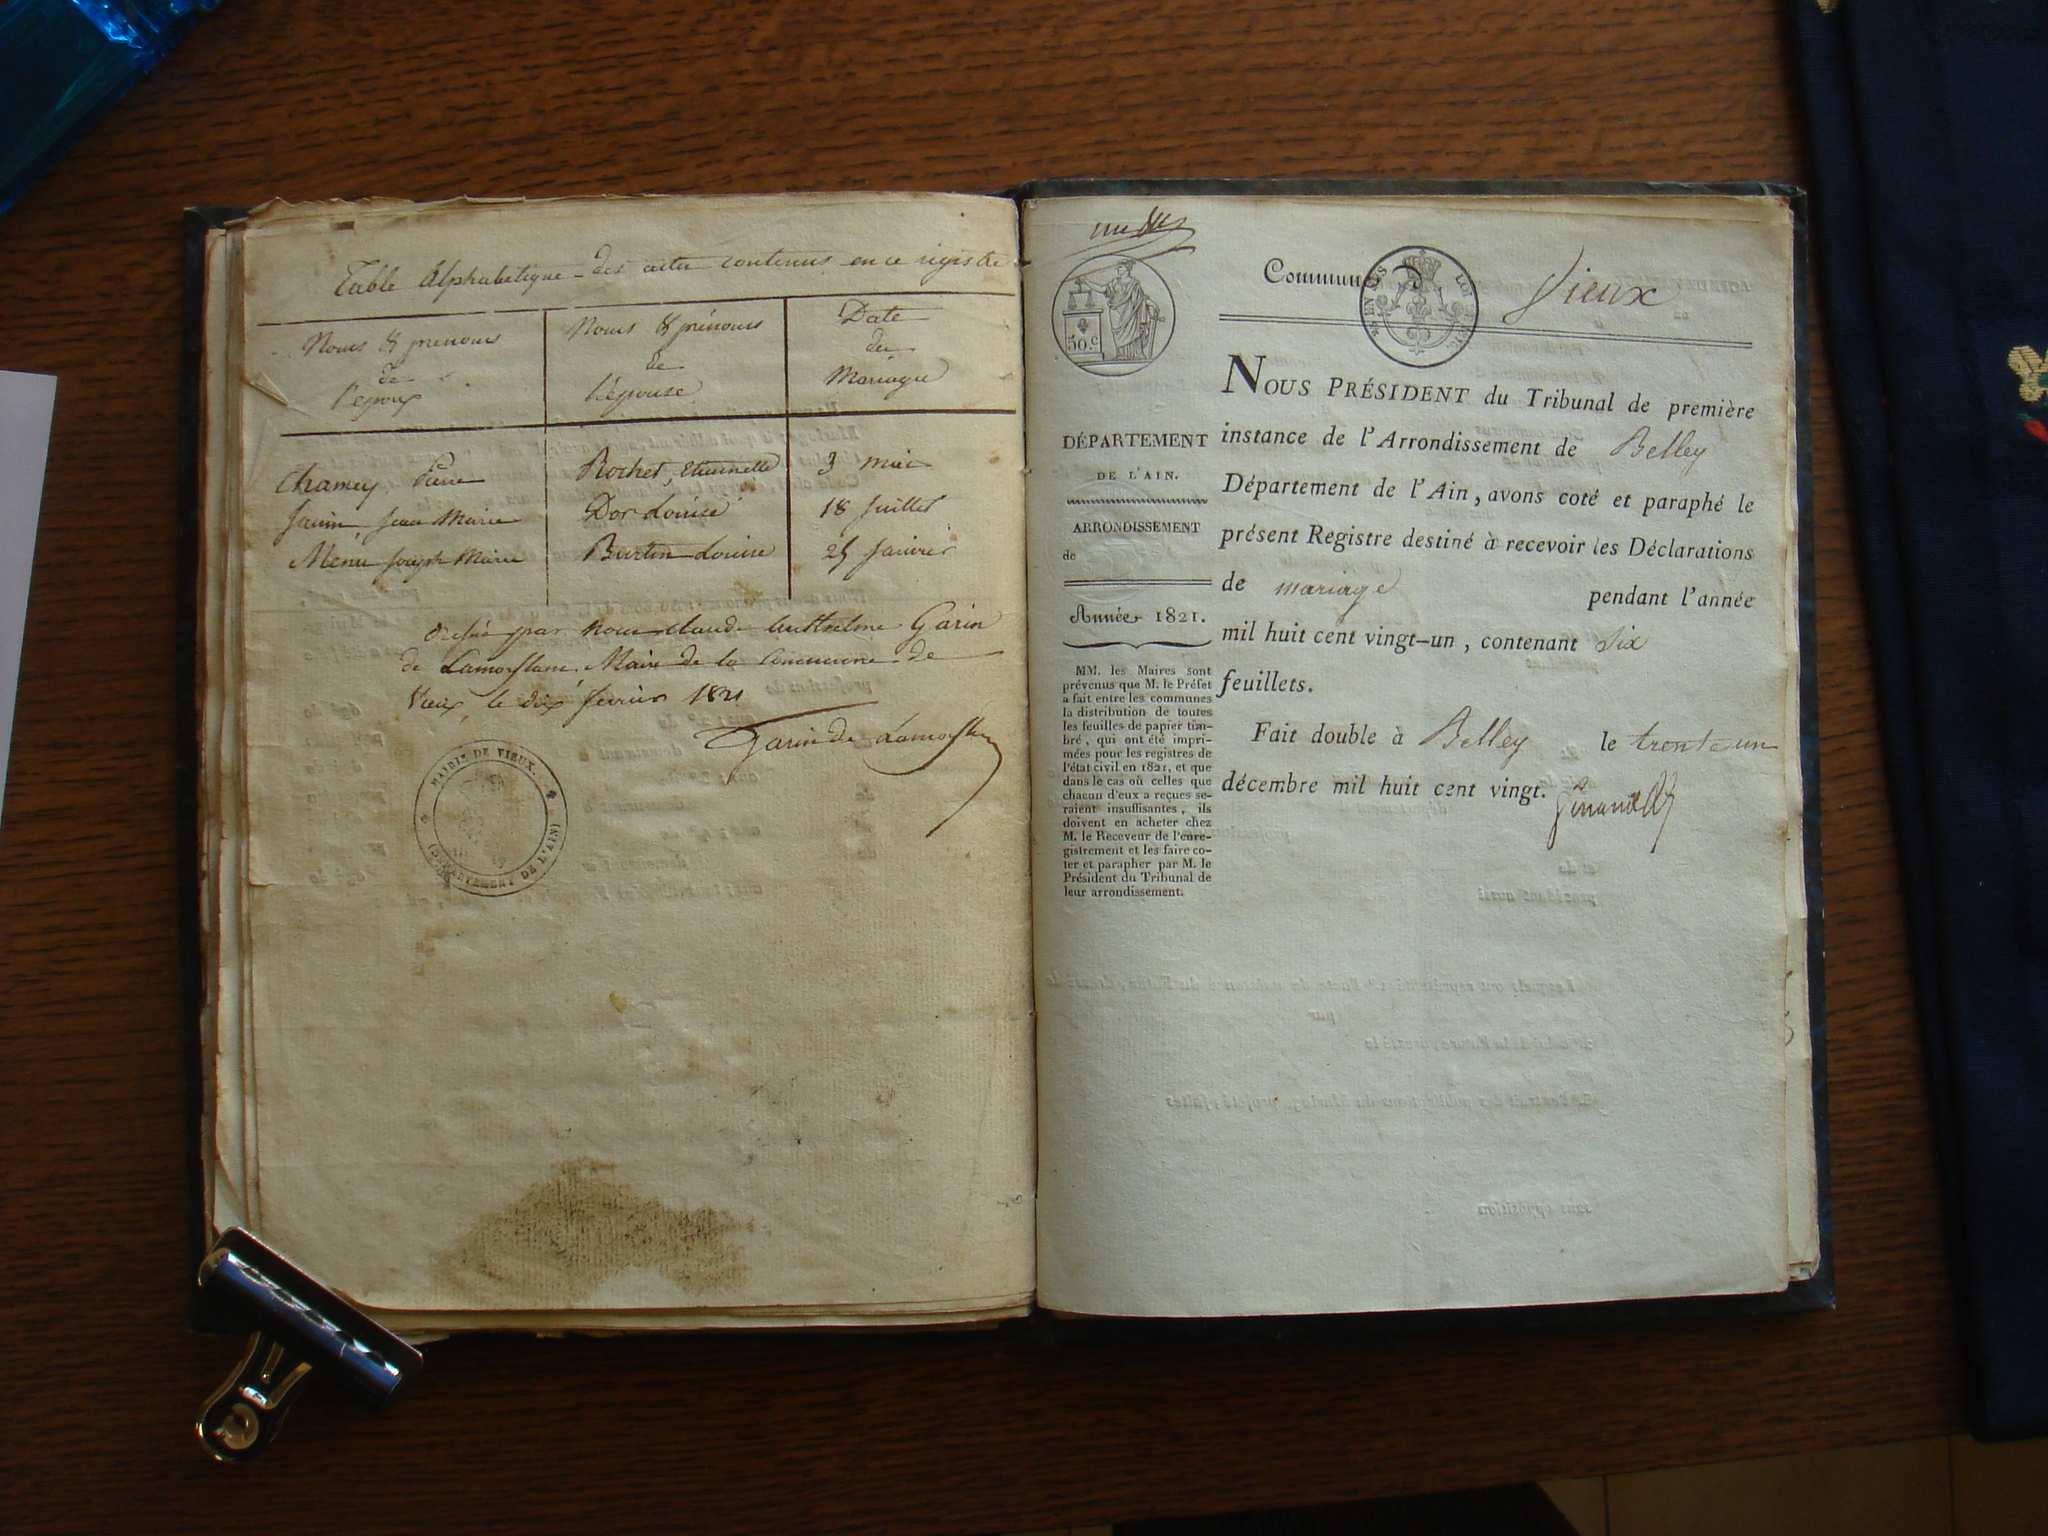 Table Alphabetique des actes contenus en ce registre
Noms & prénoms
de
l'epoux
Noms & prénoms
de
l'épouse
Date
du
Mariage
Chamey Pierre
Rochet, Etiennette
3 mai
Janin Jean Marie
Dor Louise
18 Juillet
Menu Joseph Marie
Burtin Louise
25 Janvier
par nous Claude Anthelme Garin
de Lamorflanc Maire de la Commune de
Vieux, le dix fevrier 1821
Garin de Lamorflanc
MAIRIE DE VIEUX.
(DÉPARTEMENT DE L'AIN)
Commune Vieux
50.c
DÉPARTEMENT
DE L'AIN.
ARRONDISSEMENT
de
Année 1821.
MM. les Maires sont
prévenus que M. le Préfet
a fait entre les communes
la distribution de toutes
les feuilles de papier tim-
bré, qui ont été impri-
mées pour les registres de
l'état civil en 1821, et que
dans le cas où celles que
chacun d'eux a reçues se-
raient insuffisantes, ils
doivent en acheter chez
M. le Receveur de l'enre-
gistrement et les faire co-
ter et parapher par M. le
Président du Tribunal de
leur arrondissement.
NOUS PRÉSIDENT du Tribunal de première
instance de l'Arrondissement de Belley
Département de l'Ain, avons coté et paraphé le
présent Registre destiné à recevoir les Déclarations
de mariage pendant l'année
mil huit cent vingt-un, contenant six
feuillets.
Fait double à Belley le trente un
décembre mil huit cent vingt.